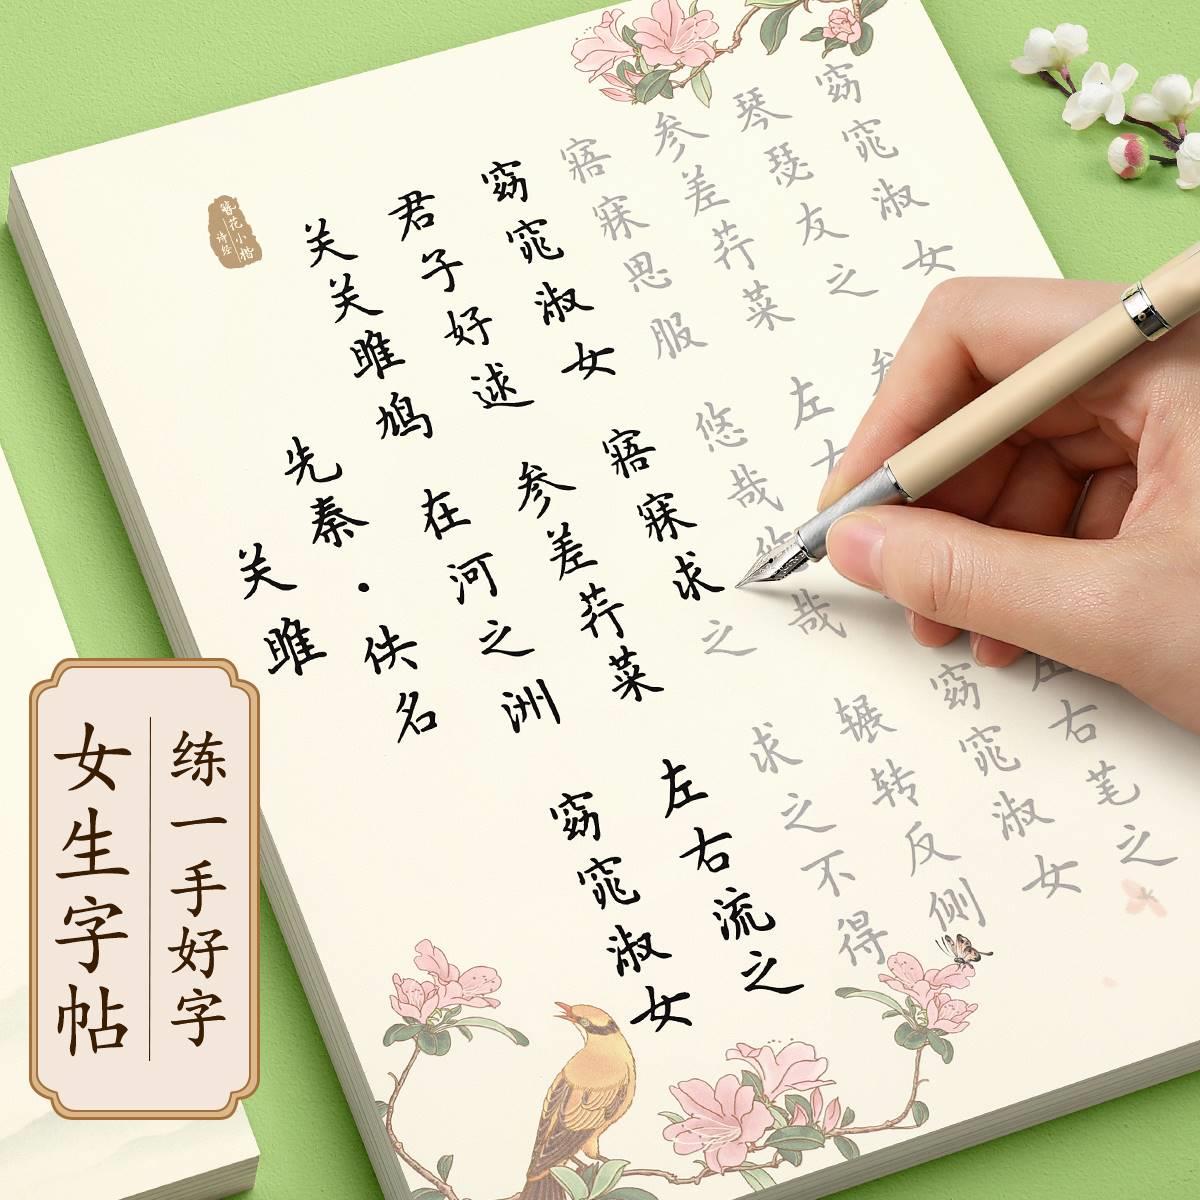 簪花小楷
诗经
关雎
先秦·佚名
关关雎鸠 在河之洲 窈窕淑女
君子好逑 参差荇菜 左右流之
窈窕淑女 寤寐求之 求之不得
寤寐思服 悠哉悠哉 辗转反侧
参差荇菜 左右 窈窕淑女
琴瑟友之 参 左右笔之
窈窕淑女
练一手好字
女生字帖